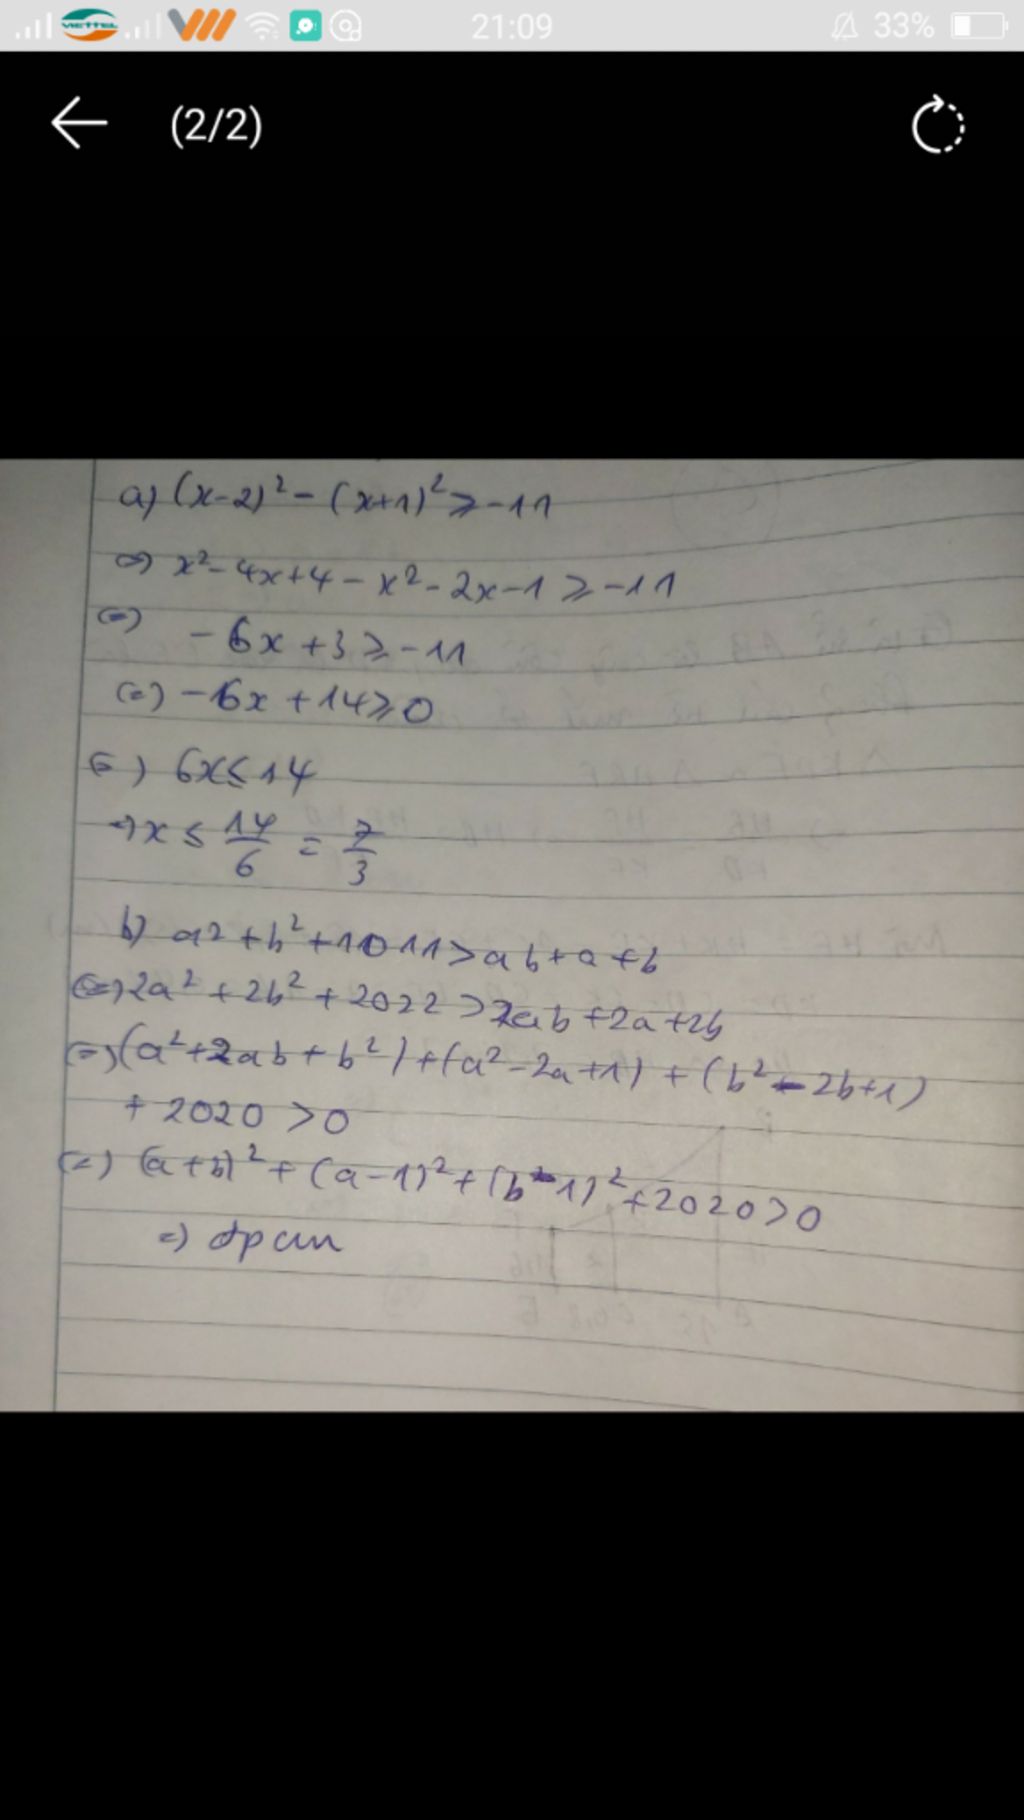 VIETTEL 21:09 33%
(2/2)
a) (x-2)² - (x+1)² ≥ -11
⇔ x² - 4x + 4 - x² - 2x - 1 ≥ -11
(=) -6x + 3 ≥ -11
(=) -6x + 14 ≥ 0
(=) 6x ≤ 14
=) x ≤ 14/6 = 7/3
b) a² + b² + 1011 > ab + a + b
(=) 2a² + 2b² + 2022 > 2ab + 2a + 2b
(=) (a² + 2ab + b²) + (a² - 2a + 1) + (b² - 2b + 1)
+ 2020 > 0
(=) (a + b)² + (a - 1)² + (b - 1)² + 2020 > 0
=) đpcm